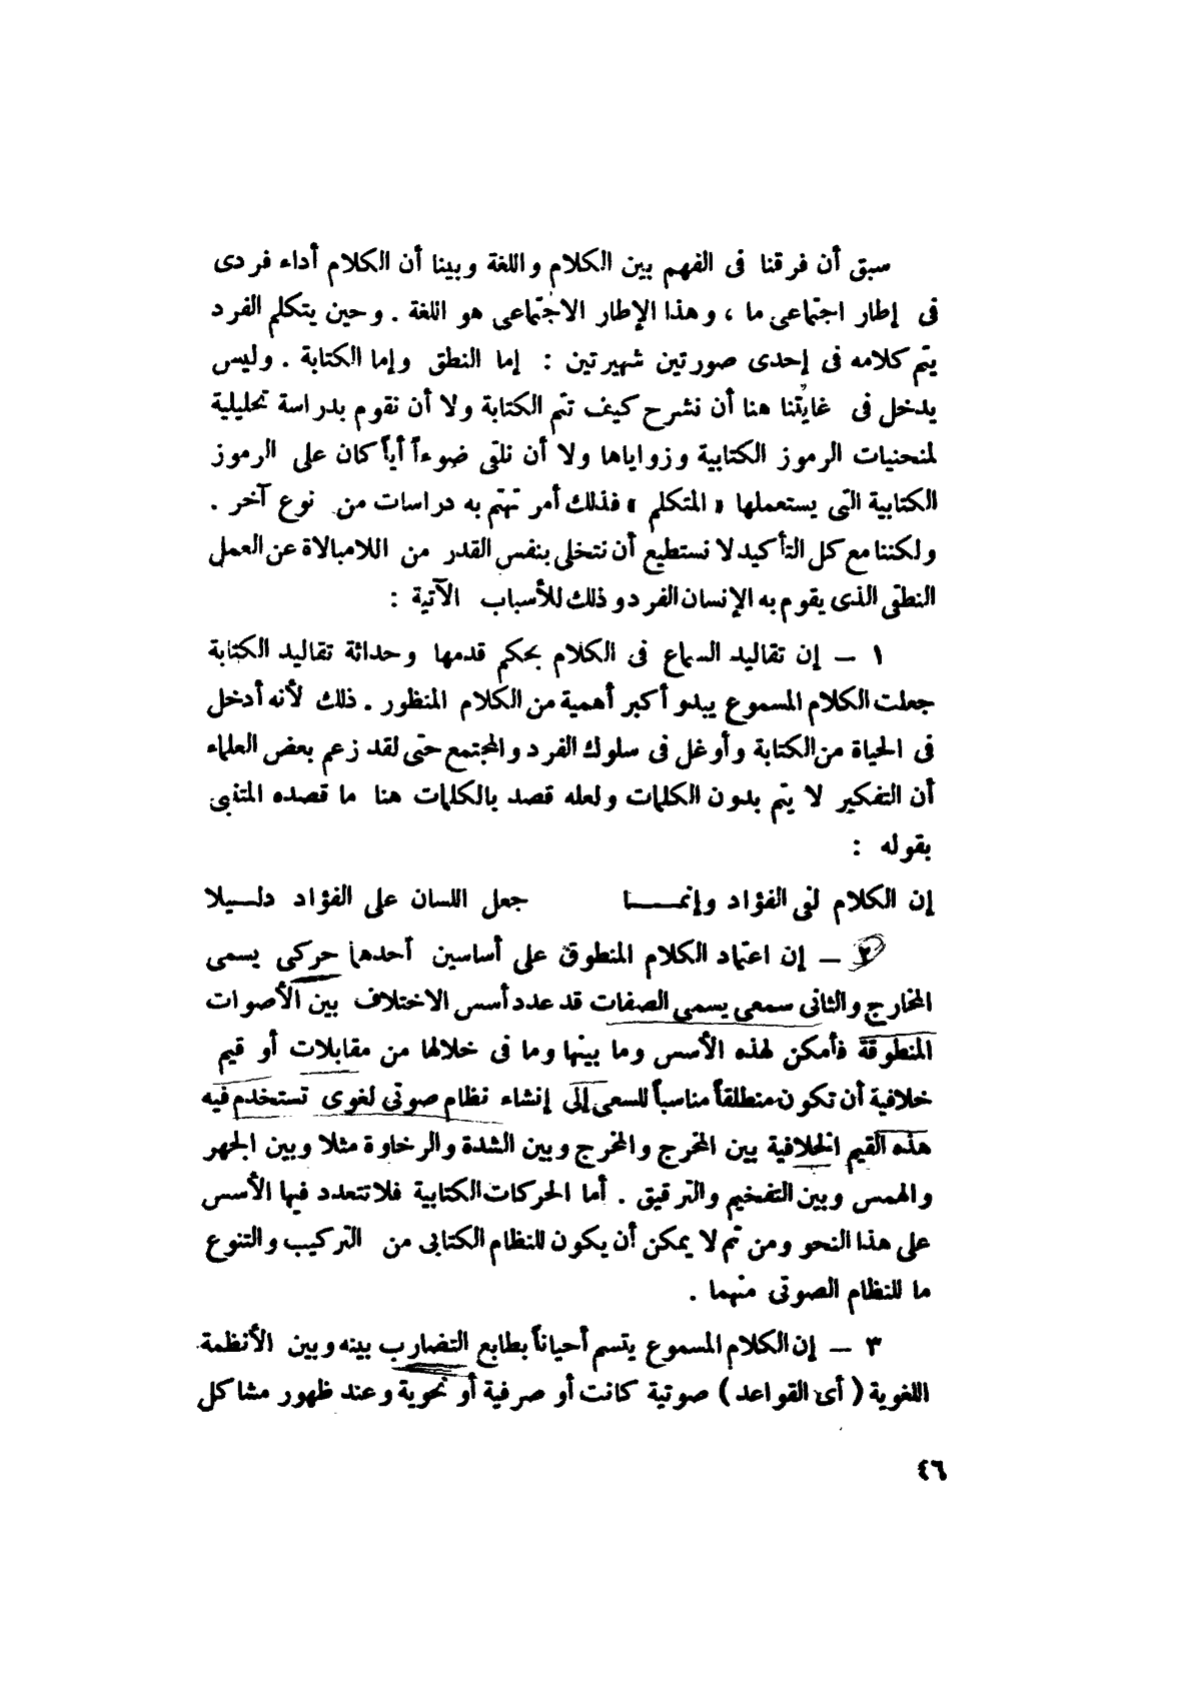 سبق أن فرقنا فى الفهم بين الكلام واللغة وبينا أن الكلام أداء فردى
فى إطار اجتماعى ما ، وهذا الإطار الاجتماعى هو اللغة . وحين يتكلم الفرد
يتم كلامه فى إحدى صورتين شهيرتين : إما النطق وإما الكتابة . وليس
يدخل فى غايتنا هنا أن نشرح كيف تتم الكتابة ولا أن نقوم بدراسة تحليلية
لمنحنيات الرموز الكتابية وزواياها ولا أن نلقى ضوءاً أياً كان على الرموز
الكتابية التى يستعملها « المتكلم » فذلك أمر تهتم به دراسات من نوع آخر .
ولكننا مع كل التأكيد لا نستطيع أن نتخلى بنفس القدر من اللامبالاة عن العمل
النطقى الذى يقوم به الإنسان الفرد وذلك للأسباب الآتية :
١ – إن تقاليد السماع فى الكلام بحكم قدمها وحداثة تقاليد الكتابة
جعلت الكلام المسموع يبدو أكبر أهمية من الكلام المنظور . ذلك لأنه أدخل
فى الحياة من الكتابة وأوغل فى سلوك الفرد والمجتمع حتى لقد زعم بعض العلماء
أن التفكير لا يتم بدون الكلمات ولعله قصد بالكلمات هنا ما قصده المتنبى
بقوله :
إن الكلام لفى الفؤاد وإنمــــا جعل اللسان على الفؤاد دلــيلا
٢ – إن اعتماد الكلام المنطوق على أساسين أحدهما حركى يسمى
المخارج والثانى سمعى يسمى الصفات قد عدد أسس الاختلاف بين الأصوات
المنطوقة فأمكن لهذه الأسس وما بينها وما فى خلالها من مقابلات أو قيم
خلافية أن تكون منطلقاً مناسباً للسعى إلى إنشاء نظام صوتى لغوى تستخدم فيه
هذه القيم الخلافية بين المخرج والمخرج وبين الشدة والرخاوة مثلا وبين الجهر
والهمس وبين التفخيم والترقيق . أما الحركات الكتابية فلا تتعدد فيها الأسس
على هذا النحو ومن ثم لا يمكن أن يكون للنظام الكتابى من التركيب والتنوع
ما للنظام الصوتى منهما .
٣ – إن الكلام المسموع يتسم أحياناً بطابع التضارب بينه وبين الأنظمة
اللغوية ( أى القواعد ) صوتية كانت أو صرفية أو نحوية وعند ظهور مشاكل
٤٦